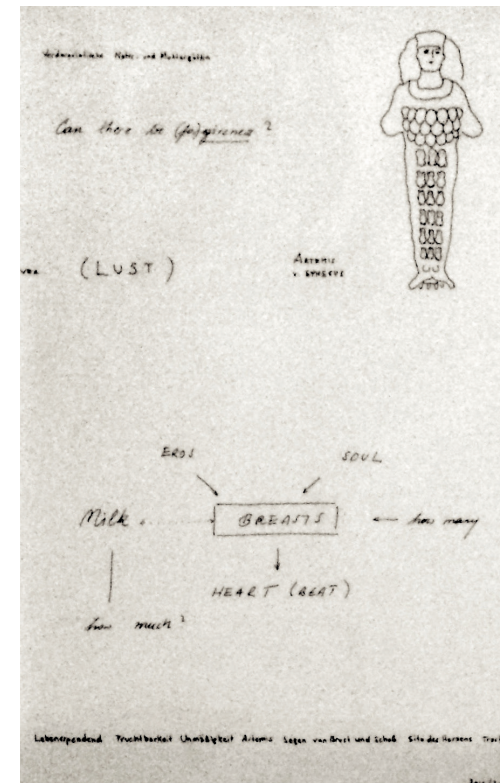 Vorderasiatische Natur- und Muttergöttin
Can there be (for)giveness?
von
(LUST)
ARTEMIS
v. EPHESUS
EROS
SOUL
Milk
BREASTS
how many
HEART (BEAT)
how much?
Lebenspendend Fruchtbarkeit Unmäßigkeit Artemis Segen von Brust und Schoß Sitz des Herzens